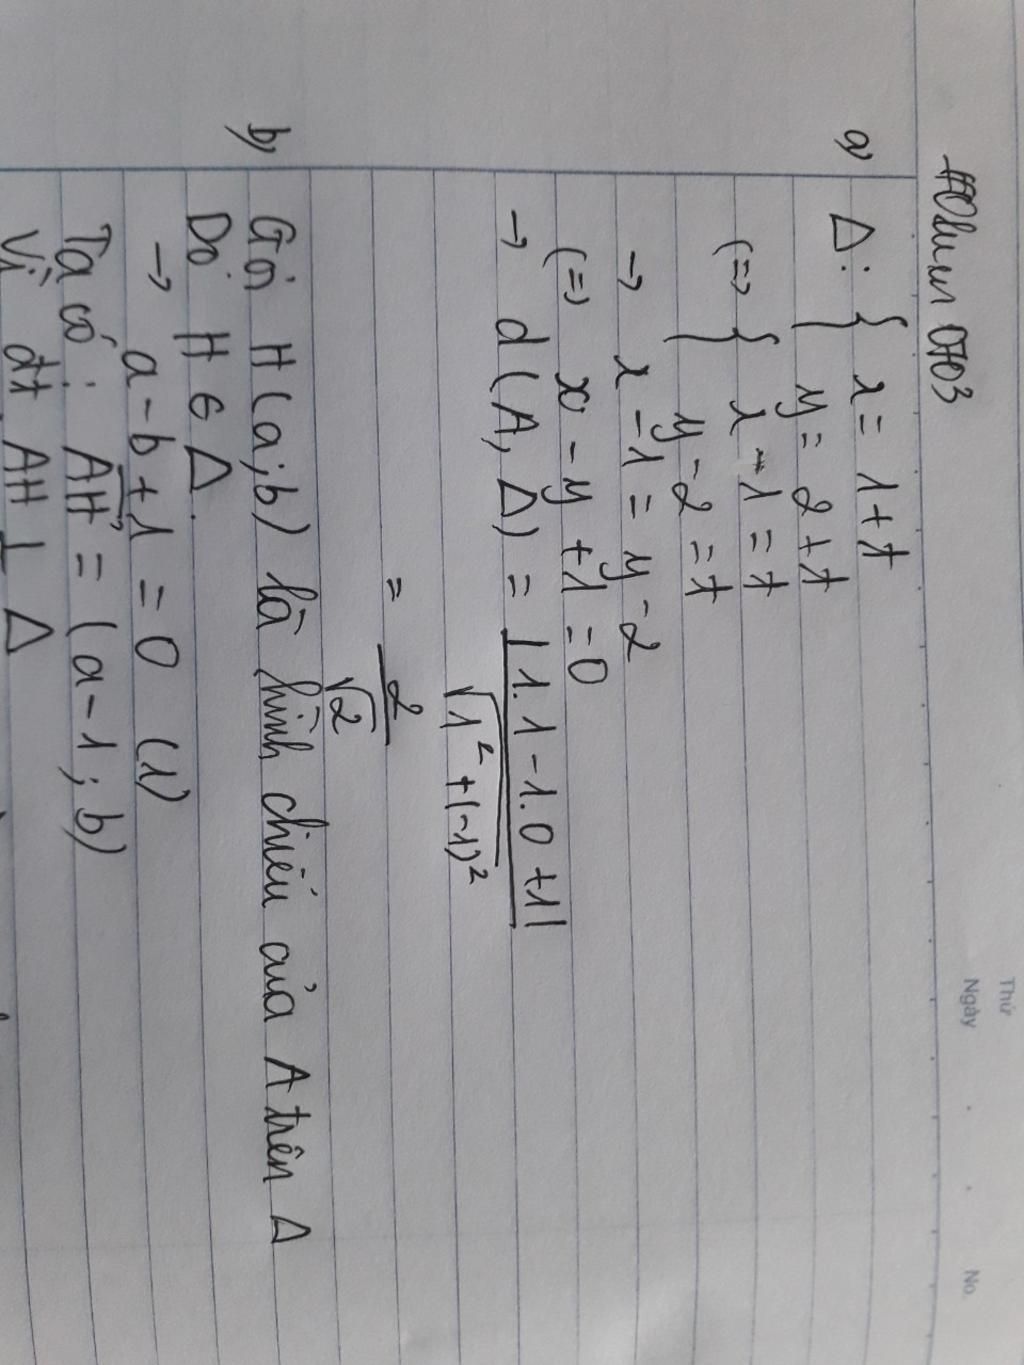 Thứ
Ngày . . No.
0703
a) Δ: { x = 1 + t
y = 2 + t
(=> { x - 1 = t
y - 2 = t
→ x - 1 = y - 2
(=> x - y + 1 = 0
→ d(A, Δ) = |1.1 - 1.0 + 1| / √1² + (-1)²
= 2 / √2
b) Gọi H(a;b) là hình chiếu của A trên Δ
Do H ∈ Δ.
→ a - b + 1 = 0 (1)
Ta có: AH→ = (a - 1; b)
Vì đt AH ⊥ Δ